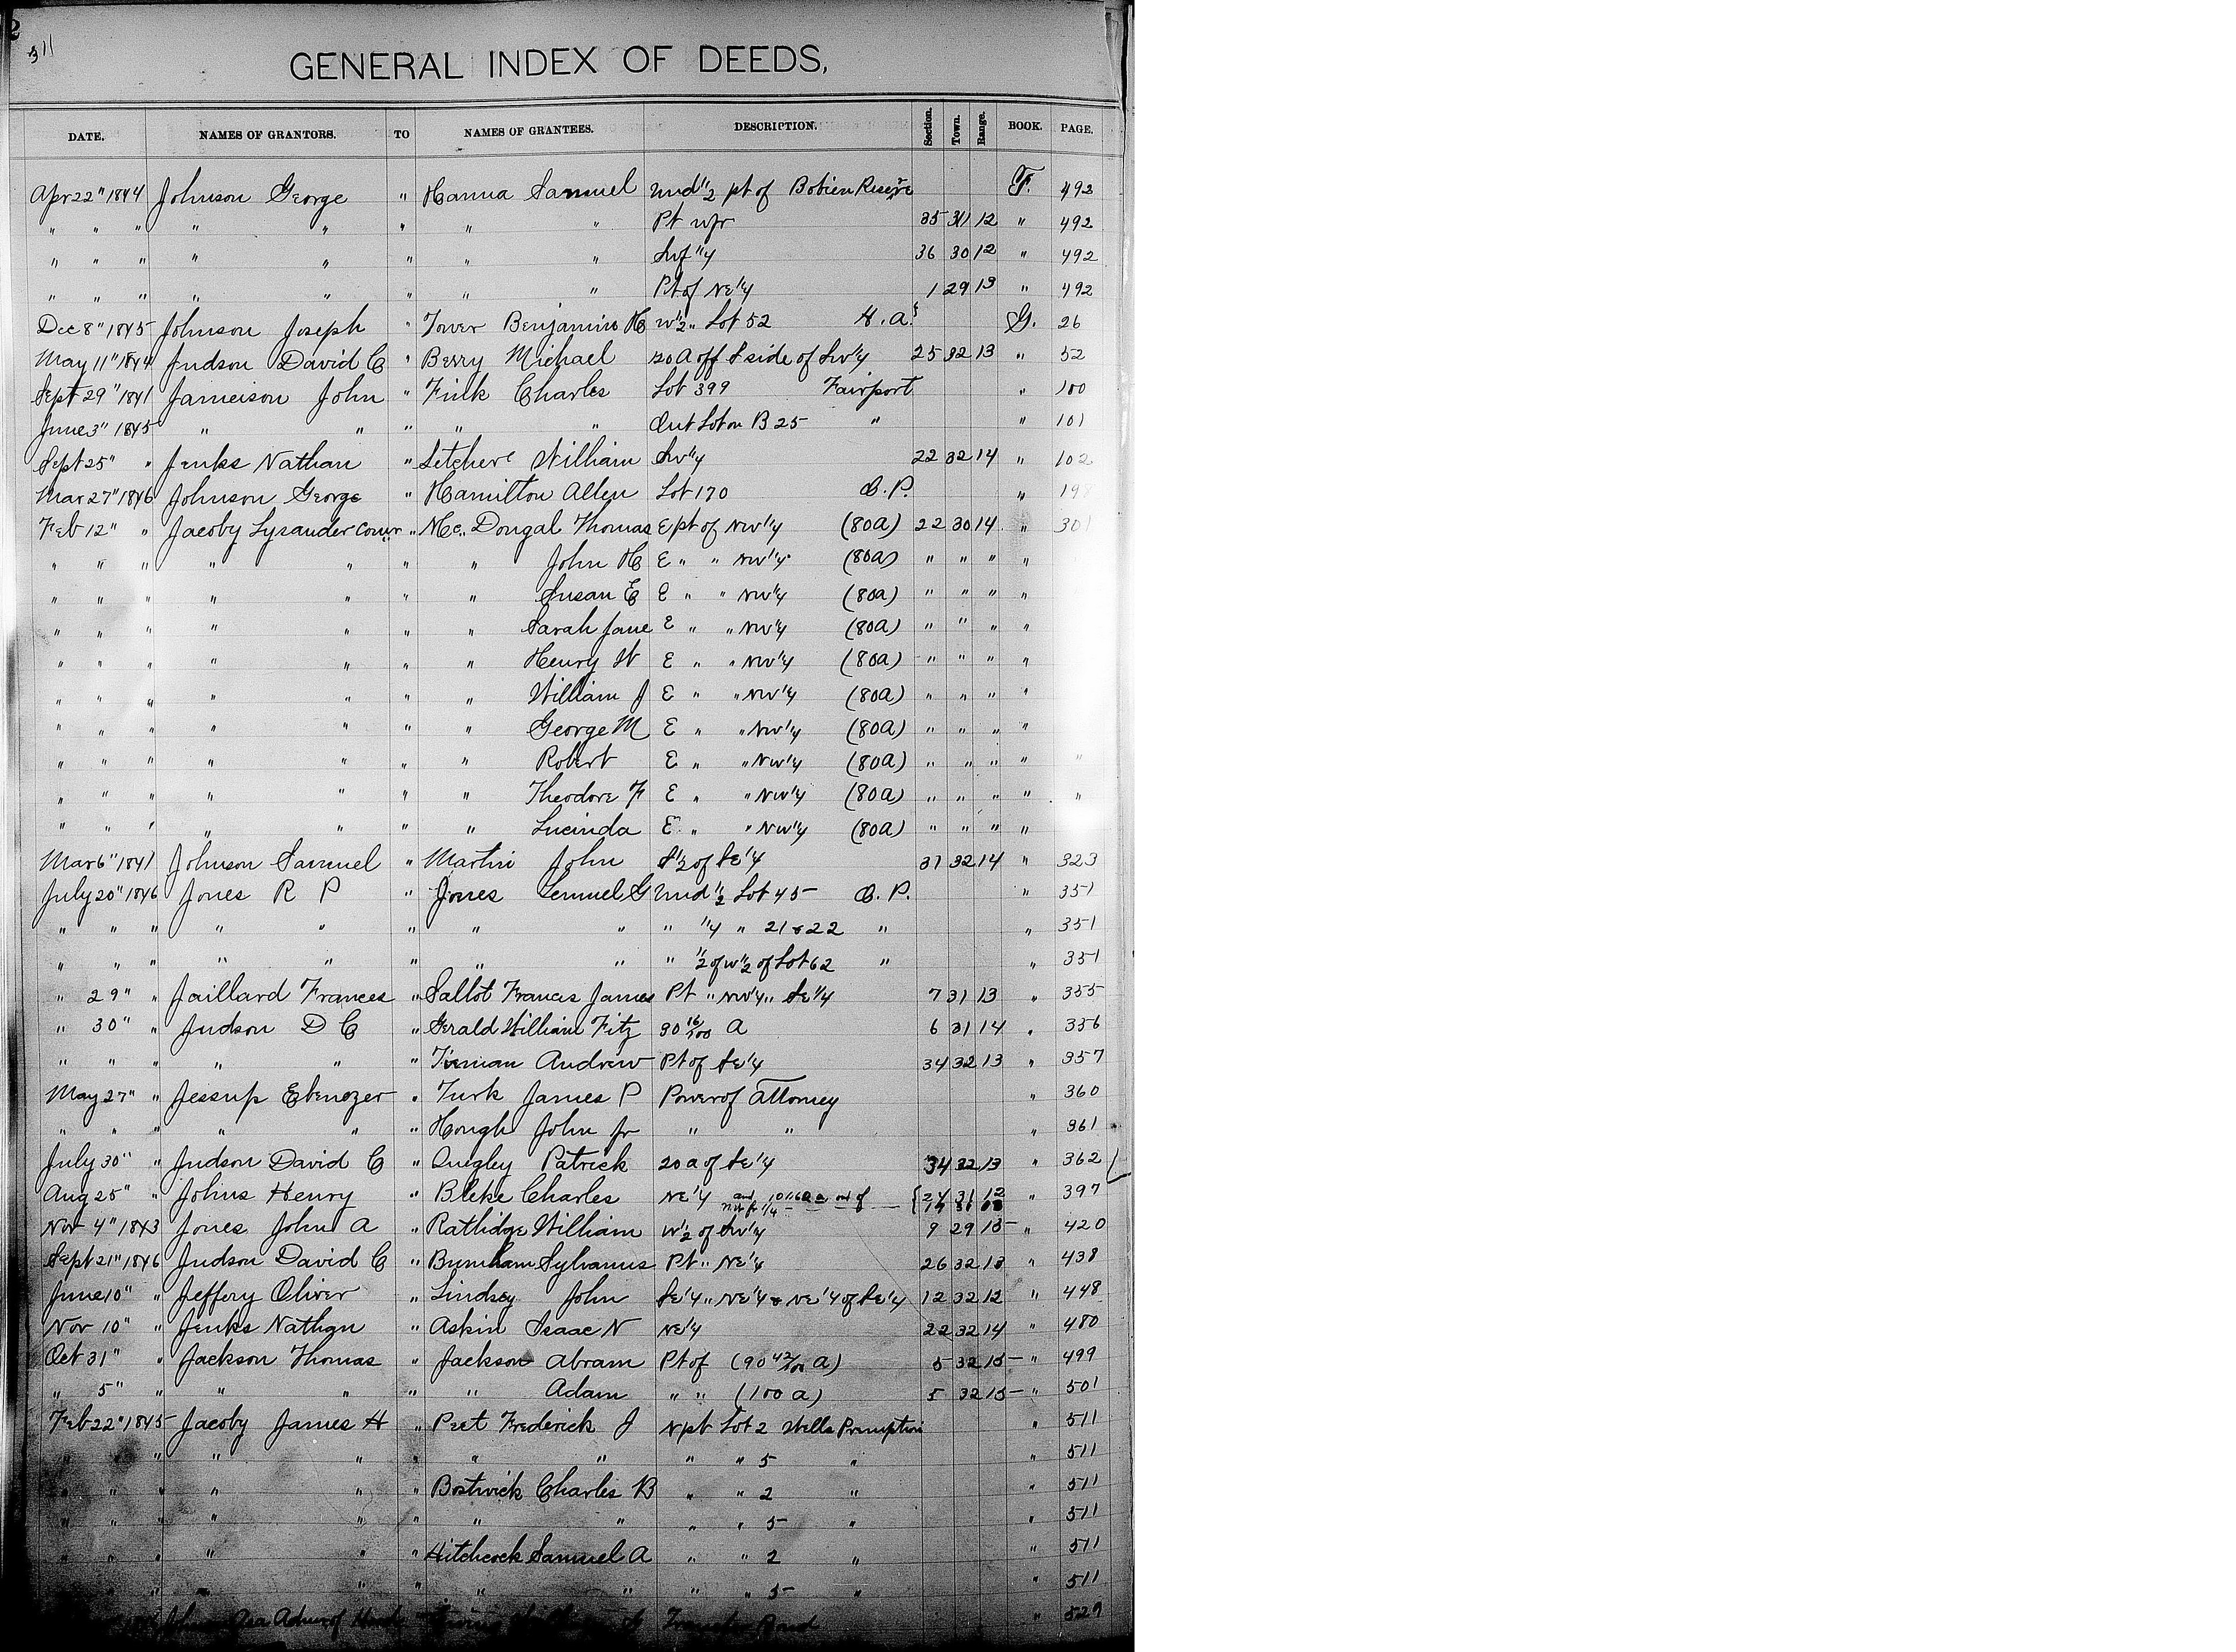 2
311
GENERAL INDEX OF DEEDS,
DATE. NAMES OF GRANTORS. TO NAMES OF GRANTEES. DESCRIPTION. Section. Town. Range. BOOK. PAGE.
Apr 22" 1844 Johnson George " Hanna Samuel Und 1/2 pt of Bobien Reserve F. 492
" " " " " " " " Pt wfr 35 31 12 " 492
" " " " " " " " Swf 1/4 36 30 12 " 492
" " " " " " " " Pt of NE 1/4 1 29 13 " 492
Dec 8" 1845 Johnson Joseph " Tower Benjamin H W 1/2 " Lot 52 H. A. G. 26
May 11" 1844 Judson David C " Berry Michael 120 A off S side of Sw 1/4 25 32 13 " 52
Sept 29" 1841 Jameison John " Fulk Charles Lot 399 Fairport " 100
June 3" 1845 " " " " " Out Lot on B 25 " " 101
Sept 25" " Jenks Nathan " Letcher William Sw 1/4 22 32 14 " 102
Mar 27" 1846 Johnson George " Hamilton Allen Lot 170 O. P. "
Feb 12" " Jacoby Lysander Comr " Mc Dougal Thomas E pt of NW 1/4 (80a) 22 30 14 " 301
" " " " " " " John H E " " NW 1/4 (80a) " " " "
" " " " " " " Susan E E " " NW 1/4 (80a) " " " "
" " " " " " " Sarah Jane E " " NW 1/4 (80a) " " " "
" " " " " " " Henry W E " " NW 1/4 (80a) " " " "
" " " " " " " William J E " " NW 1/4 (80a) " " " "
" " " " " " " George M E " " NW 1/4 (80a) " " " "
" " " " " " " Robert E " " NW 1/4 (80a) " " " " "
" " " " " " " Theodore F E " " NW 1/4 (80a) " " " " "
" " " " " " " Lucinda E " " NW 1/4 (80a) " " " "
Mar 6" 1841 Johnson Samuel " Martin John S 1/2 of Se 1/4 31 32 14 " 323
July 20" 1846 Jones R P " Jones Lemuel G Und 1/2 Lot 45 O. P. " 351
" " " " " " " " " 1/4 " 21 & 22 " " 351
" " " " " " " " " 1/2 of W 1/2 of Lot 62 " " 351
" 29" " Jaillard Frances " Sallot Francis James Pt " NW 1/4 " Se 1/4 7 31 13 " 355
" 30" " Judson D C " Gerald William Fitz 90 16/100 A 6 31 14 " 356
" " " " " " Tinman Andrew Pt of Se 1/4 34 32 13 " 357
May 27" " Jessup Ebenezer " Turk James P Power of Attorney " 360
" " " " " " Hough John Jr " " " 361
July 30" " Judson David C " Quigley Patrick 20 a of Se 1/4 34 32 13 " 362
Aug 25" " Johns Henry " Bleke Charles NE 1/4 24 31 12 " 397
Nov 4" 1843 Jones John A " Ratlidge William W 1/2 of Sw 1/4 9 29 15 " 420
Sept 21" 1846 Judson David C " Burnham Sylvanus Pt " NE 1/4 26 32 13 " 438
June 10" " Jeffery Oliver " Lindsey John Se 1/4 " NE 1/4 & NE 1/4 of Se 1/4 12 32 12 " 448
Nov 10" " Jenks Nathan " Askin Isaac N NE 1/4 22 32 14 " 480
Oct 31" " Jackson Thomas " Jackson Abram Pt of (90 42/100 a) 5 32 15 " 499
" 5" " " " " " Adam " " (100 a) 5 32 15 " 501
Feb 22" 1845 Jacoby James H " Peet Frederick J N pt Lot 2 Wells Premption " 511
" " " " " " " " " " 5 " " 511
" " " " " " Bostwick Charles B " " 2 " " 511
" " " " " " " " " " 5 " " 511
" " " " " " Hitchcock Samuel A " " 2 " " 511
" " " " " " " " " " 5 " " 511
Asa Admr of " 529